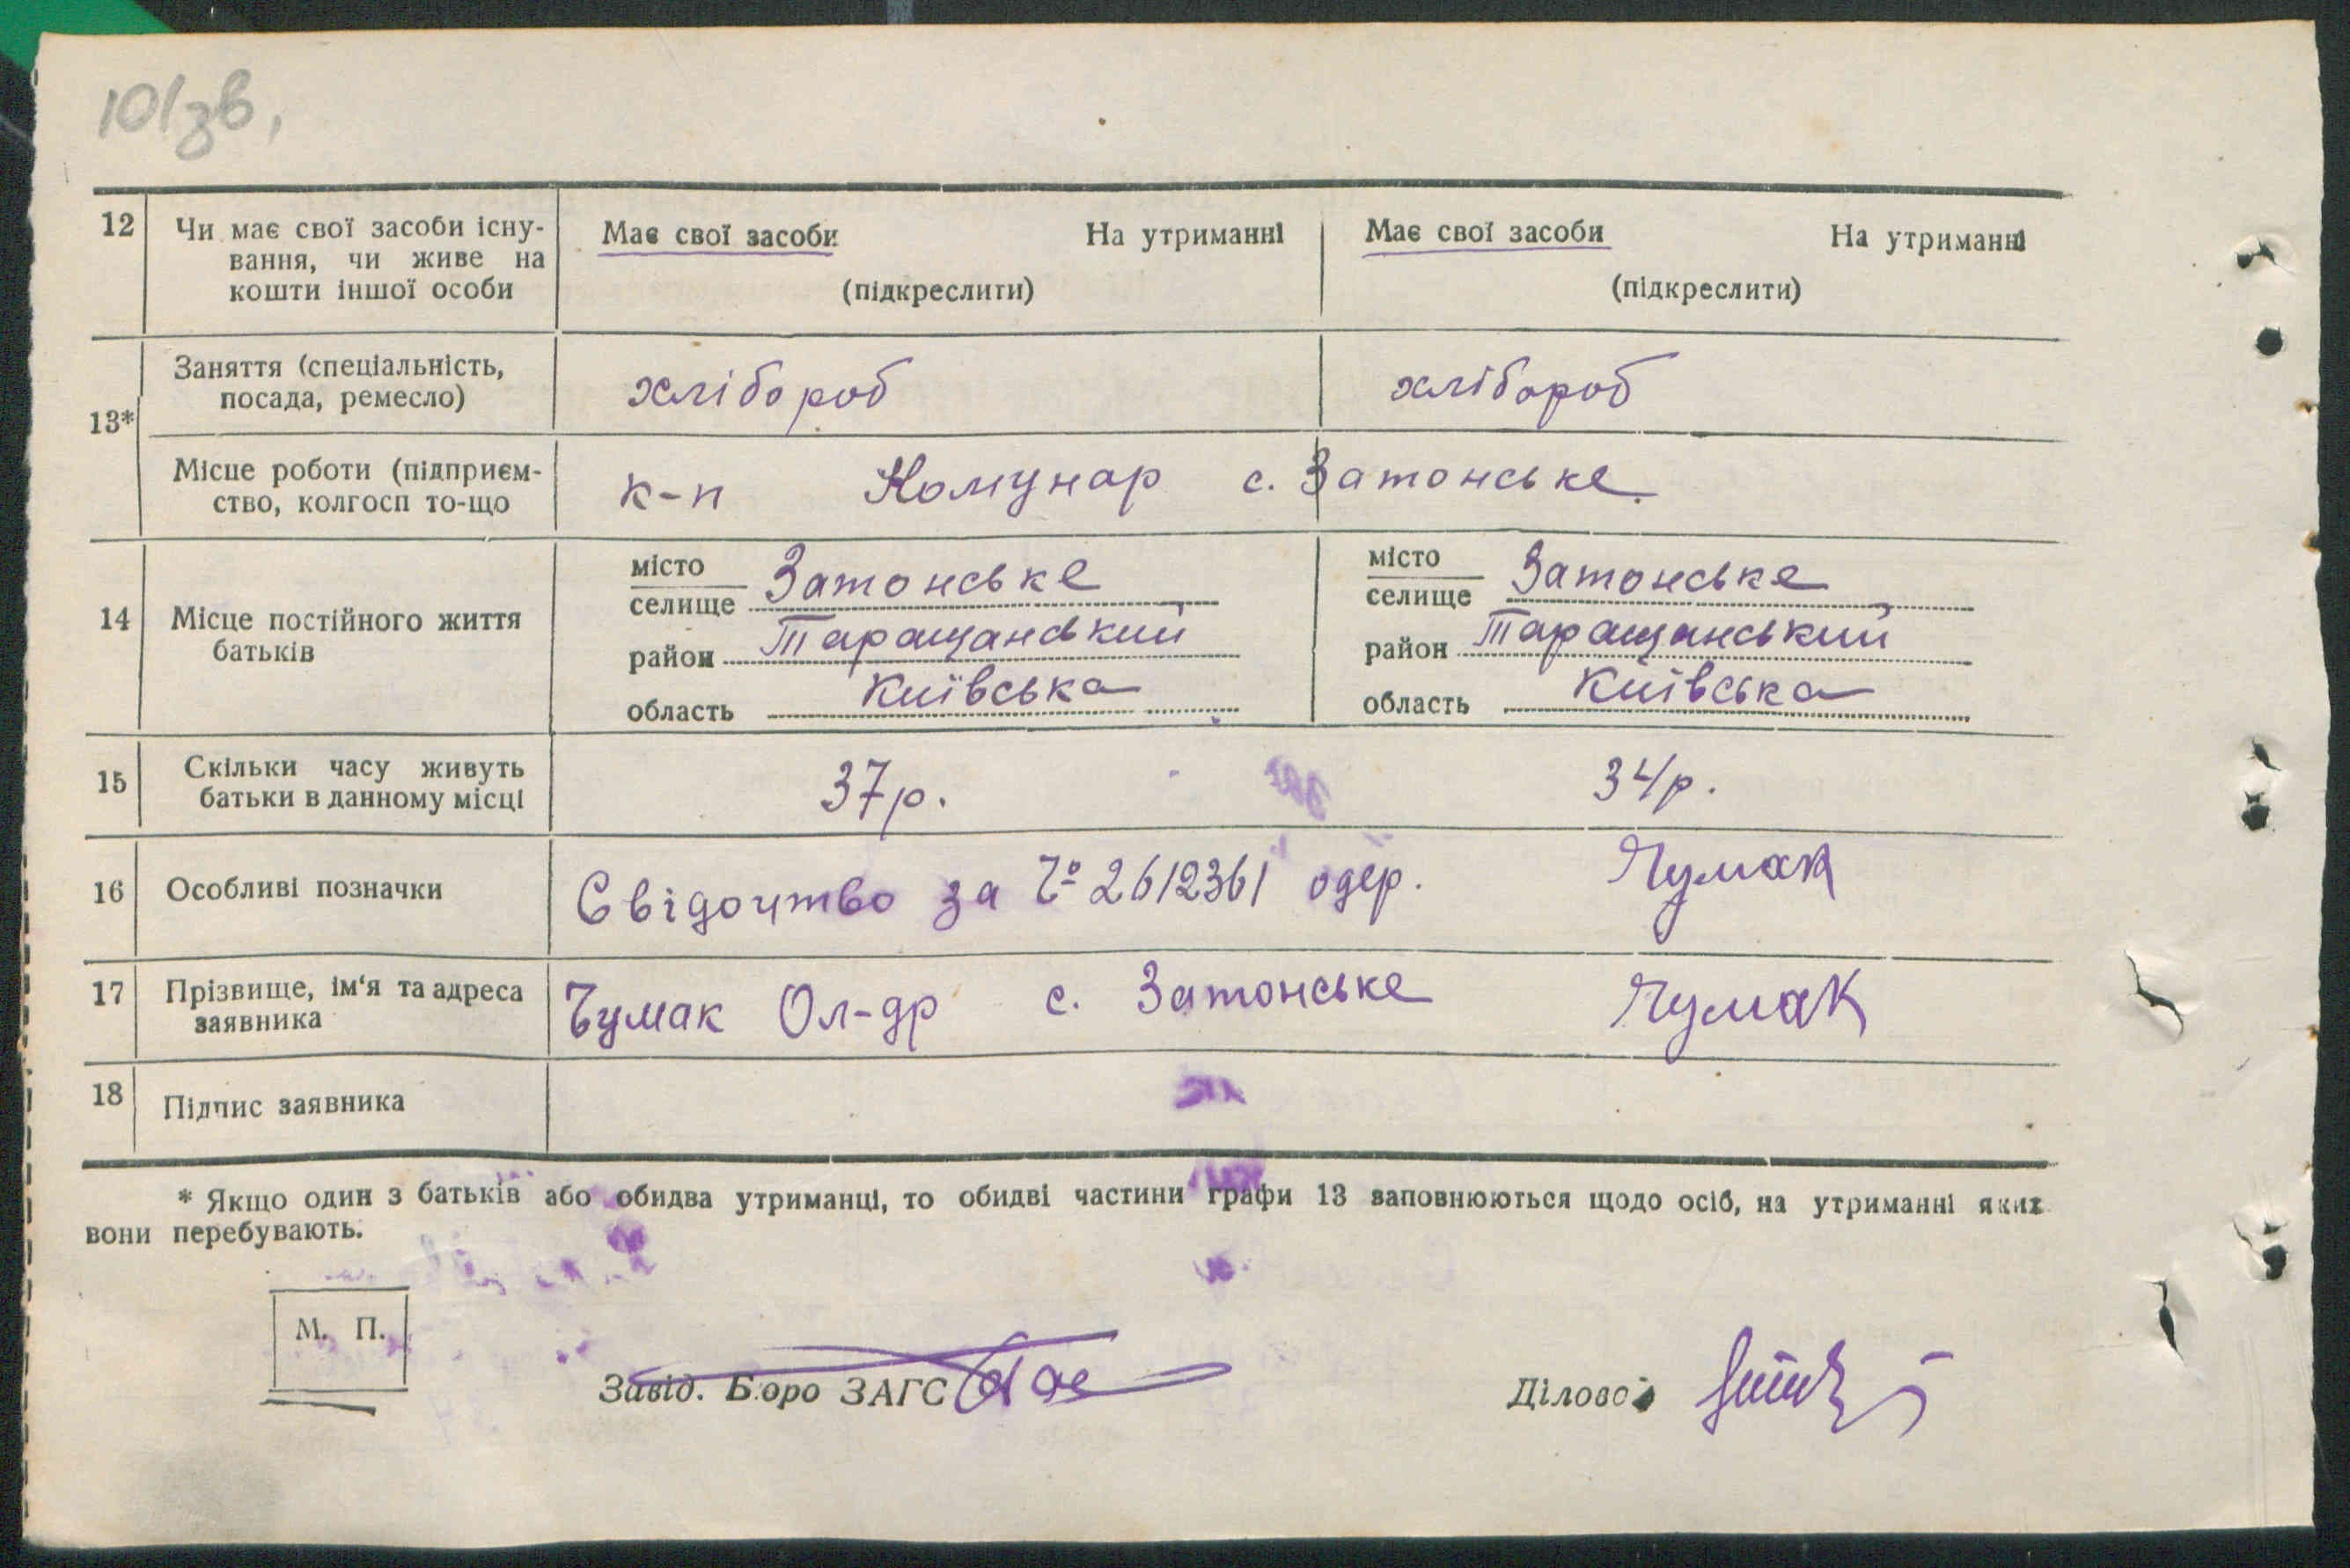 101зв,
12 Чи має свої засоби існу- Має свої засоби На утриманні Має свої засоби На утриманні
вання, чи живе на
кошти іншої особи (підкреслити) (підкреслити)
13* Заняття (спеціальність, хлібороб хлібороб
посада, ремесло)
Місце роботи (підприєм- к-п Комунар с. Затонське
ство, колгосп то-що
14 Місце постійного життя
батьків
місто Затонське місто Затонське
селище селище
район Таращанський район Таращанський
область Київська область Київська
15 Скільки часу живуть 37р. 34р.
батьки в данному місці
16 Особливі позначки Свідоцтво за № 2612361 одер. Чумак
17 Прізвище, ім‘я та адреса Чумак Ол-др с. Затонське Чумак
заявника
18 Підпис заявника
* Якщо один з батьків або обидва утриманці, то обидві частини графи 13 заповнюються щодо осіб, на утриманні яких
вони перебувають.
М. П.
Завід. Бюро ЗАГС Діловод